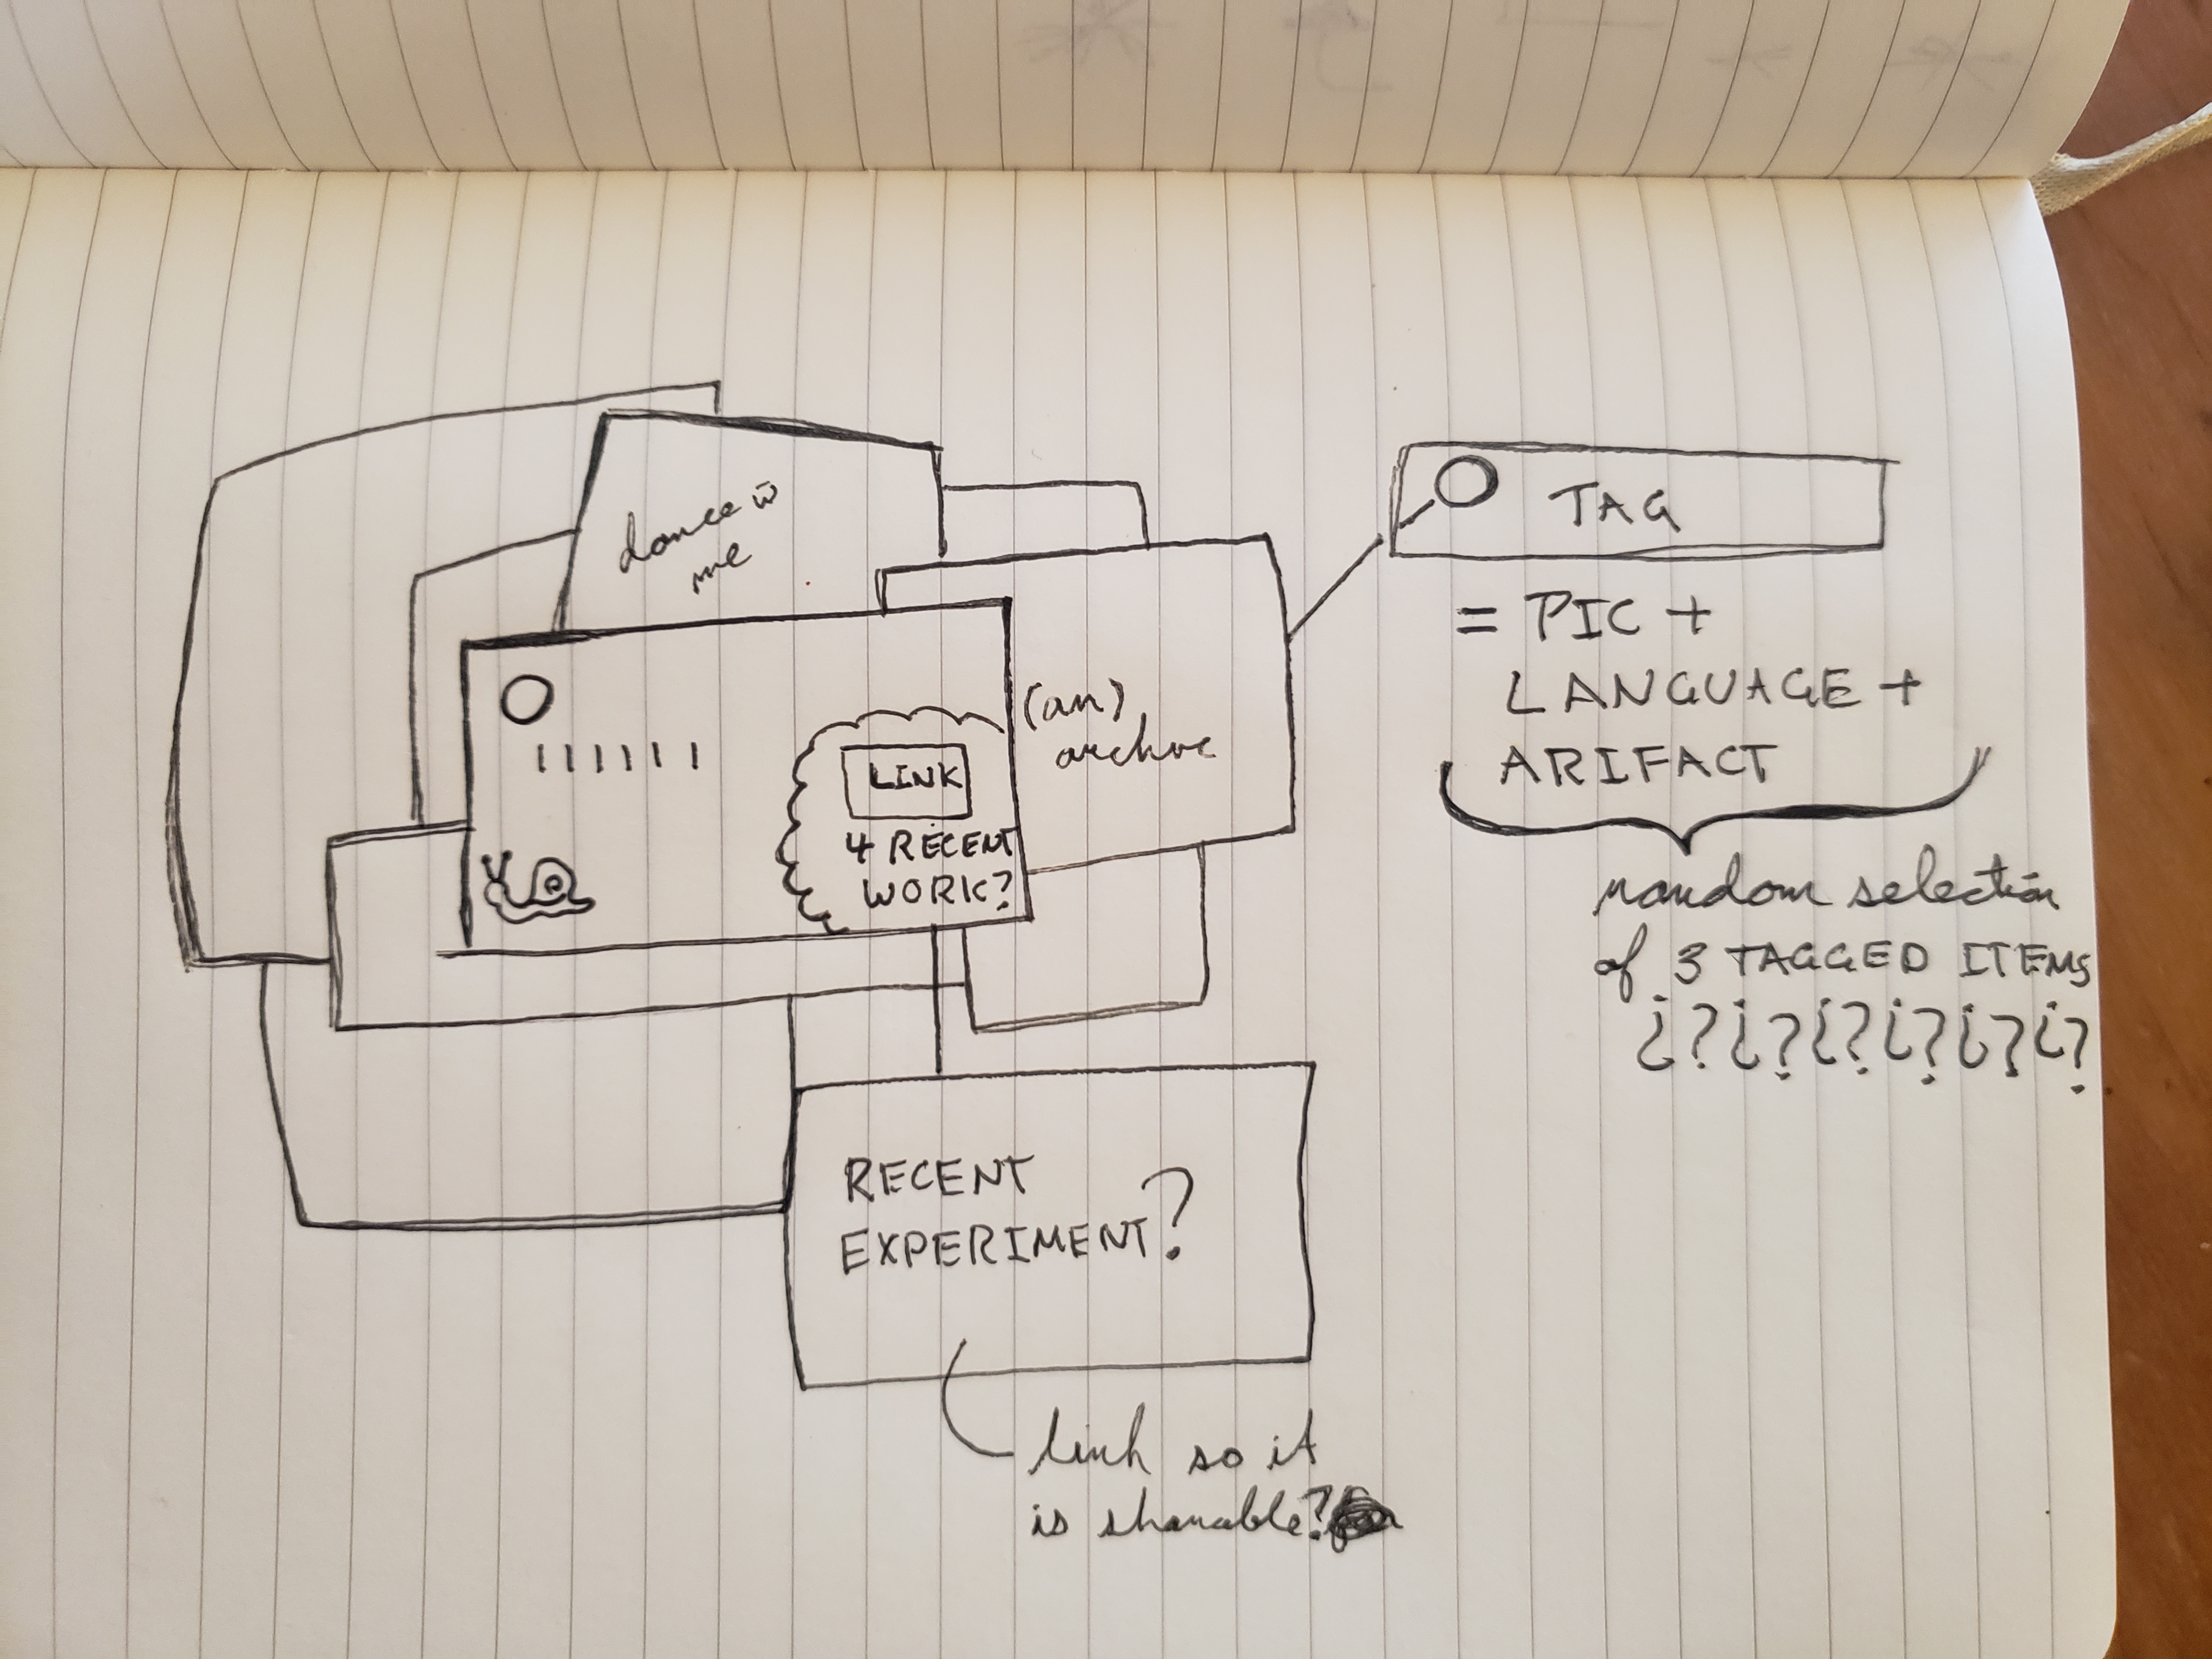 dance w̄
me
LINK
4 RECENT
WORK?
(an)
archive
RECENT
EXPERIMENT?
link so it
is shareable?
TAG
= PIC +
LANGUAGE +
ARIFACT
random selection
of 3 TAGGED ITEMS
¿?¿?¿?¿?¿?¿?